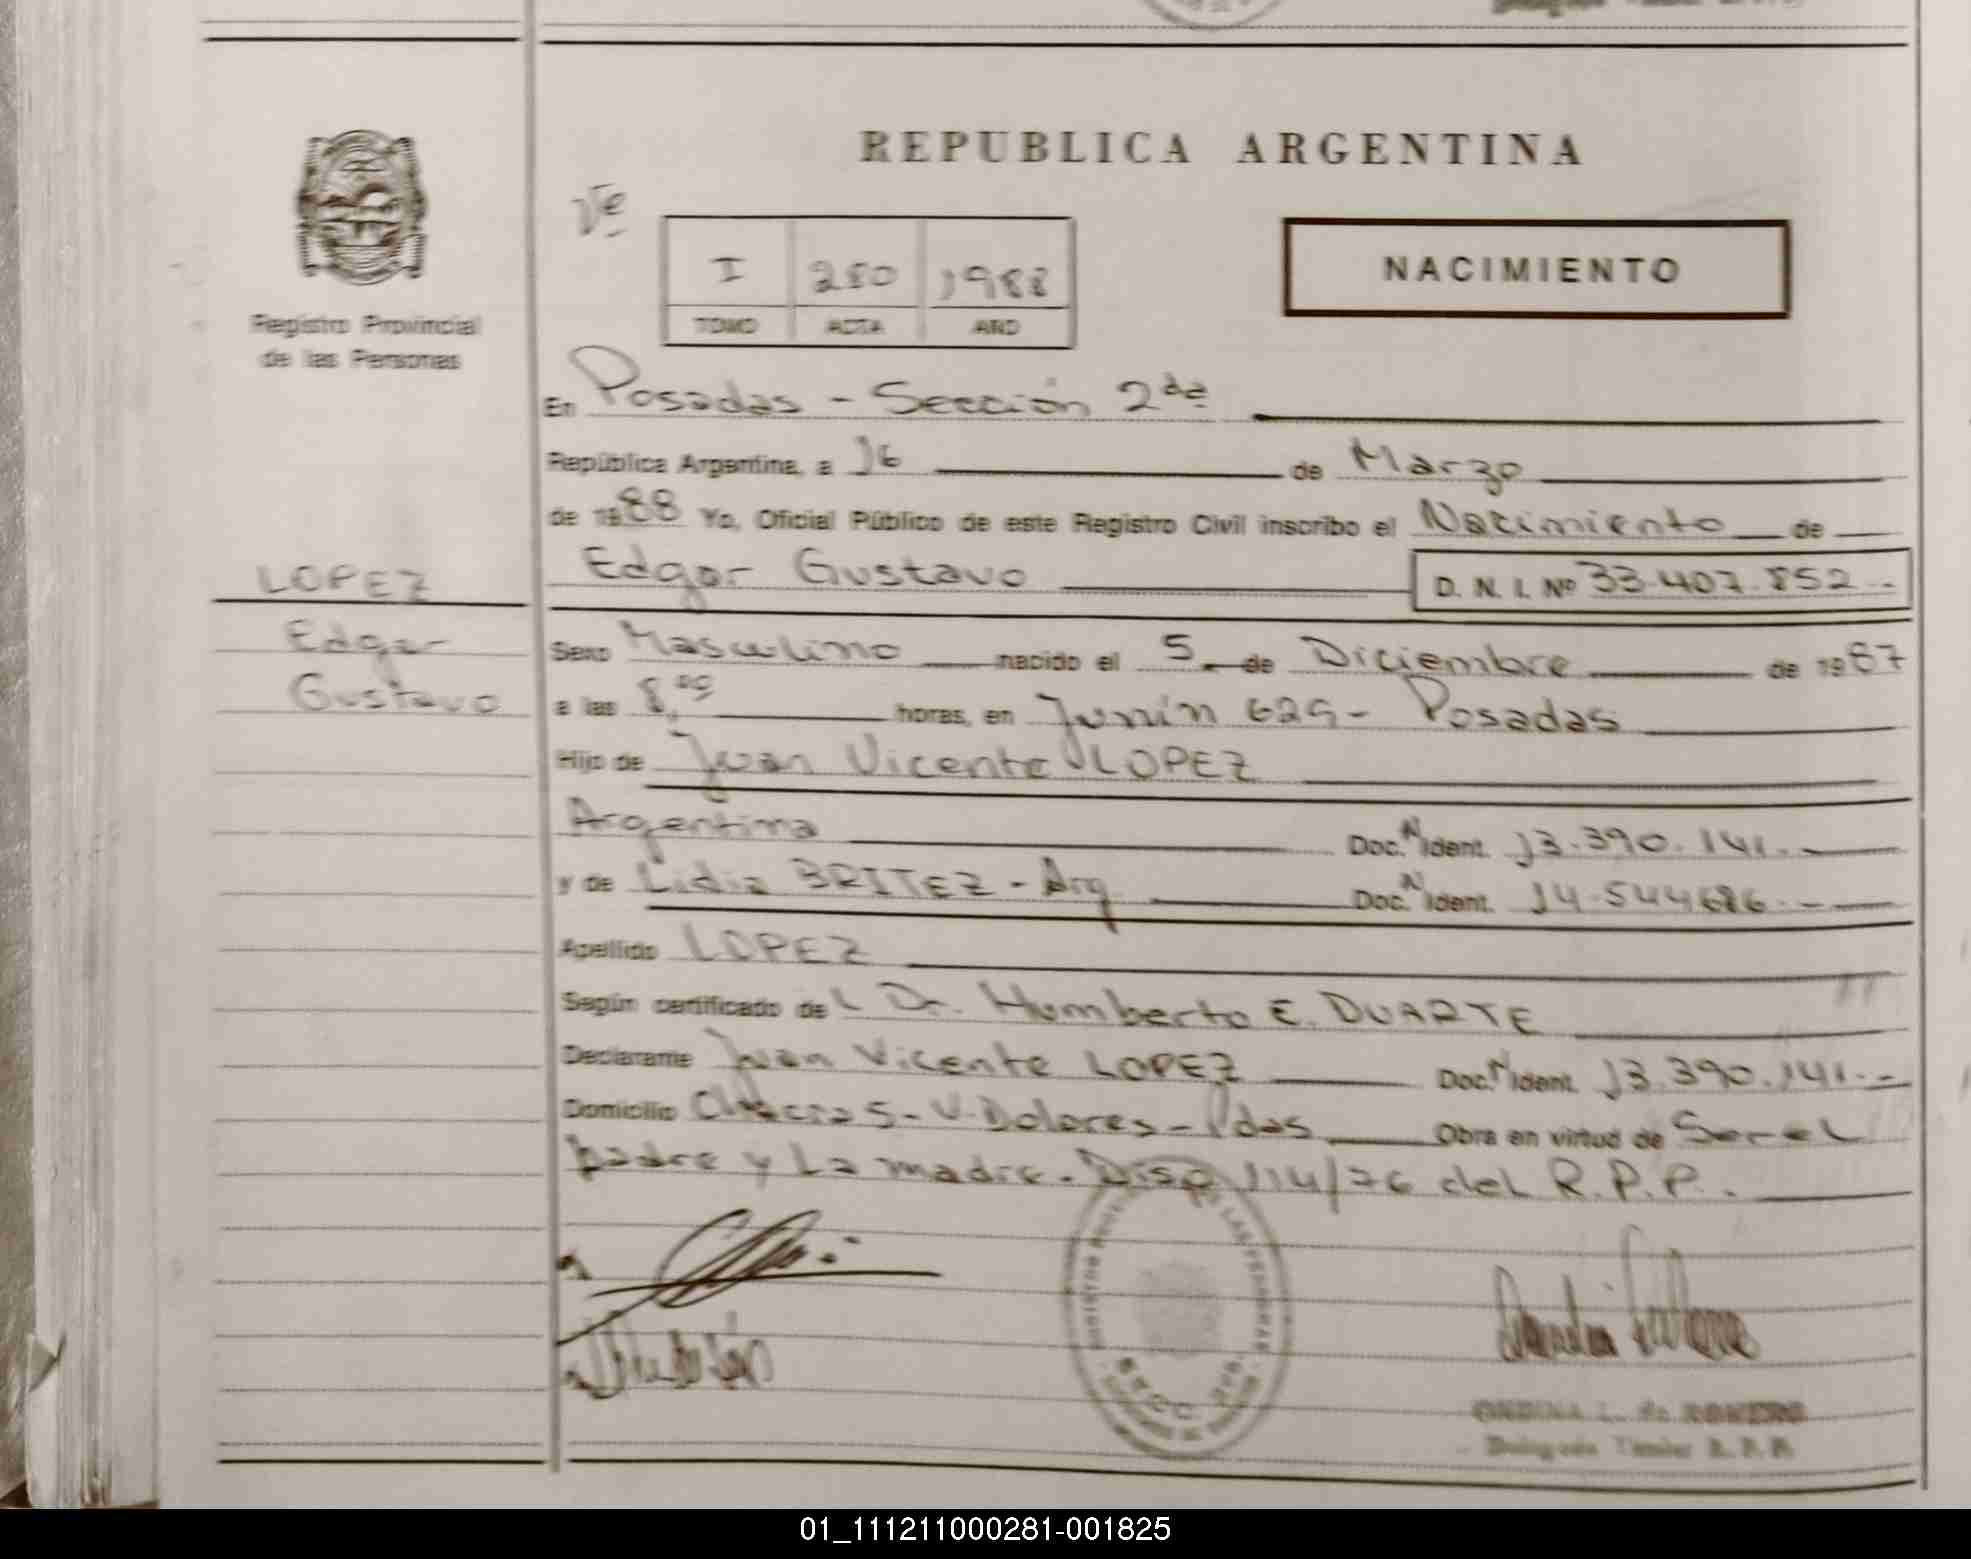 REPUBLICA ARGENTINA
Vº
I 280 1988
TOMO ACTA AÑO
NACIMIENTO
Registro Provincial
de las Personas
En Posadas - Sección 2da
República Argentina, a 16 de Marzo
de 1988 Yo, Oficial Público de este Registro Civil inscribo el Nacimiento de
LOPEZ
Edgar Gustavo D. N. I. Nº 33.407.852.-
Edgar
Gustavo
Sexo Masculino nacido el 5 de Diciembre de 1987
a las 8,00 horas, en Junín 629 - Posadas
Hijo de Juan Vicente LOPEZ
Argentina Doc. N Ident. 13.390.141.-
y de Lidia BRITEZ - Arg Doc. N Ident. 14.544686.-
Apellido LOPEZ
Según certificado del Dr. Humberto E. DUARTE
Declarante Juan Vicente LOPEZ Doc. N Ident. 13.390.141.-
Domicilio Chacra 5 - V. Dolores - Pdas Obra en virtud de Ser el
padre y La madre. Disp 114/76 del R.P.P.
ONDINA L. de ROMERO
Delegada Titular R. P. P.
01_111211000281-001825